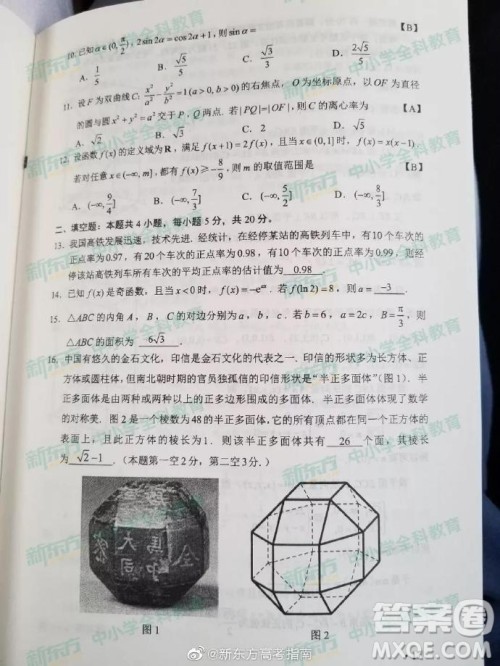 10. 已知 α∈(0, π/2), 2sin2α=cos2α+1, 则 sinα= 【B】
A. 1/5 B. √5/5 C. √3/3 D. 2√5/5
11. 设 F 为双曲线 C: x²/a² − y²/b² =1(a>0, b>0) 的右焦点, O 为坐标原点, 以 OF 为直径
的圆与圆 x²+y²=a² 交于 P, Q 两点. 若 |PQ|=|OF|, 则 C 的离心率为 【A】
A. √2 B. √3 C. 2 D. √5
12. 设函数 f(x) 的定义域为 R, 满足 f(x+1)=2f(x), 且当 x∈(0,1] 时, f(x)=x(x−1)
若对任意 x∈(−∞, m], 都有 f(x)≥−8/9, 则 m 的取值范围是 【B】
A. (−∞, 9/4] B. (−∞, 7/3] C. (−∞, 5/2] D. (−∞, 8/3]
二、填空题: 本题共 4 小题, 每小题 5 分, 共 20 分.
13. 我国高铁发展迅速, 技术先进. 经统计, 在经停某站的高铁列车中, 有 10 个车次的
正点率为 0.97, 有 20 个车次的正点率为 0.98, 有 10 个车次的正点率为 0.99. 则经
停该站高铁列车所有车次的平均正点率的估计值为 0.98
14. 已知 f(x) 是奇函数, 且当 x<0 时, f(x)=−e^{ax}. 若 f(ln2)=8, 则 a= −3 .
15. △ABC 的内角 A, B, C 的对边分别为 a, b, c. 若 b=6, a=2c, B=π/3, 则
△ABC 的面积为 6√3 .
16. 中国有悠久的金石文化, 印信是金石文化的代表之一. 印信的形状多为长方体、正
方体或圆柱体, 但南北朝时期的官员独孤信的印信形状是“半正多面体”(图 1). 半
正多面体是由两种或两种以上的正多边形围成的多面体. 半正多面体体现了数学
的对称美. 图 2 是一个棱数为 48 的半正多面体, 它的所有顶点都在同一个正方体的
表面上, 且此正方体的棱长为 1. 则该半正多面体共有 26 个面, 其棱长
为 √2−1 . (本题第一空 2 分, 第二空 3 分.)
图 1
图 2
新东方 中小学全科教育
@新东方高考指南
答案圈
MXQE.COM